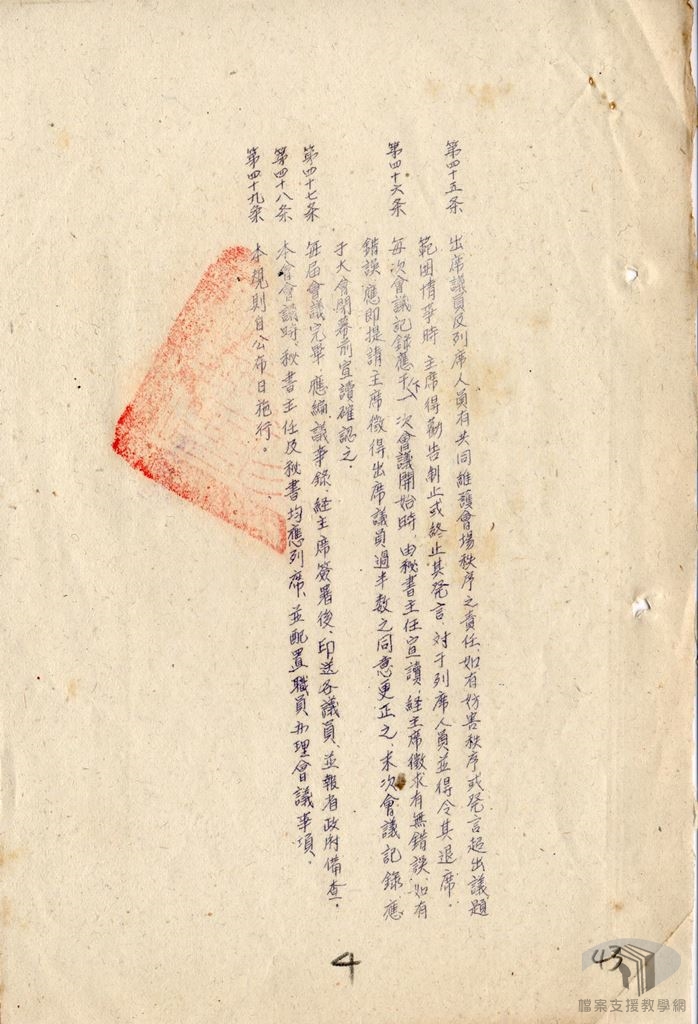 第四十五条　出席議員及列席人員有共同維護會場秩序之責任、如有妨害秩序或発言超出議題
範围情事時、主席得勸告制止或終止其発言、対于列席人員並得令其退席。
第四十六条　每次會議記錄應于下一次會議開始時、由秘書主任宣讀、経主席徵求有無錯誤、如有
錯誤應即提請主席徵得出席議員過半数之同意更正之、末次會議記錄應
于大會閉幕前宣讀確認之。
第四十七条　每屆會議完畢、應編議事录、経主席簽署後、印送各議員、並報省政府備查。
第四十八条　本會會議時、秘書主任及秘書均應列席、並配置職員办理會議事項。
第四十九条　本規則自公布日施行。
4
43
檔案支援教學網